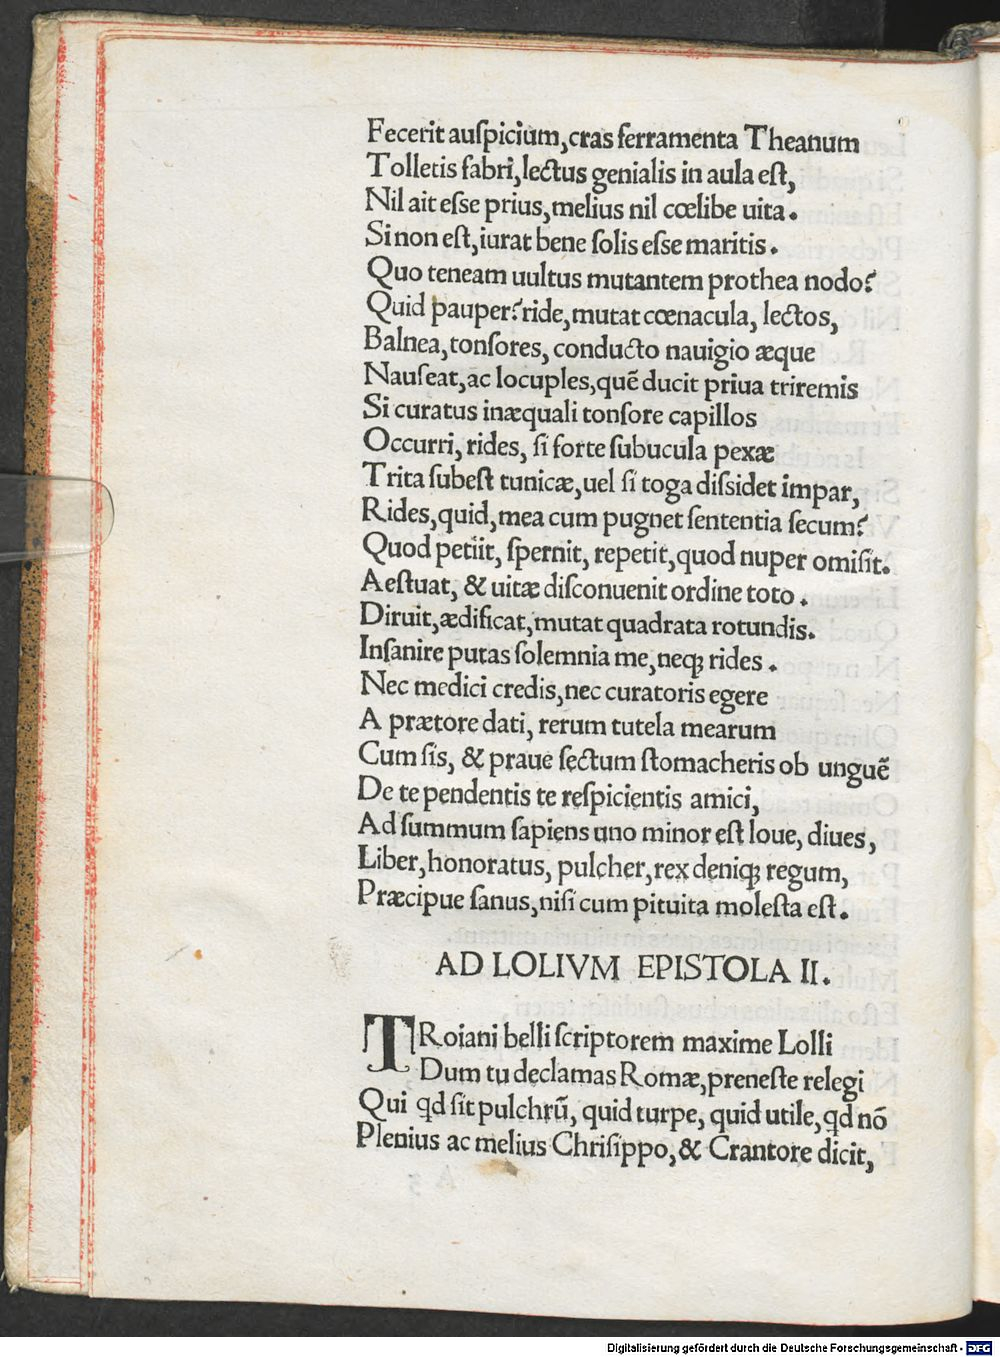 Fecerit auſpicium, cras ferramenta Theanum
Tolletis fabri, lectus genialis in aula eſt,
Nil ait eſse prius, melius nil cœlibe uita.
Si non eſt, iurat bene ſolis eſse maritis.
Quo teneam uultus mutantem prothea nodo?
Quid pauper? ride, mutat cœnacula, lectos,
Balnea, tonſores, conducto nauigio æque
Nauſeat, ac locuples, quē ducit priua triremis
Si curatus inæquali tonſore capillos
Occurri, rides, ſi forte ſubucula pexæ
Trita ſubeſt tunicæ, uel ſi toga diſsidet impar,
Rides, quid, mea cum pugnet ſententia ſecum?
Quod petiit, ſpernit, repetit, quod nuper omiſit.
Aeſtuat, & uitæ diſconuenit ordine toto.
Diruit, ædificat, mutat quadrata rotundis.
Inſanire putas ſolemnia me, neqꝫ rides.
Nec medici credis, nec curatoris egere
A prætore dati, rerum tutela mearum
Cum ſis, & praue ſectum ſtomacheris ob unguē
De te pendentis te reſpicientis amici,
Ad ſummum ſapiens uno minor eſt Ioue, diues,
Liber, honoratus, pulcher, rex deniqꝫ regum,
Præcipue ſanus, niſi cum pituita moleſta eſt.
AD LOLIVM EPISTOLA II.
TRoiani belli ſcriptorem maxime Lolli
Dum tu declamas Romæ, preneſte relegi
Qui qd ſit pulchrū, quid turpe, quid utile, qd nō
Plenius ac melius Chriſippo, & Crantore dicit,
Digitalisierung gefördert durch die Deutsche Forschungsgemeinschaft - DFG